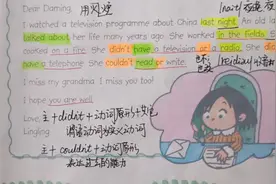 Dear Daming,
I watched a television programme about China last night. An old lady
talked about her life many years ago. She worked in the fields. She
cooked on a fire. She didn't have a television or a radio. She didn't
have a telephone. She couldn't read or write.
I miss my grandma. I miss you too!
I hope you are well.
Love,
Lingling
主+didn't+动词原形+其他
谓语动词为实义动词
主+couldn't+动词原形
表达过去的能力